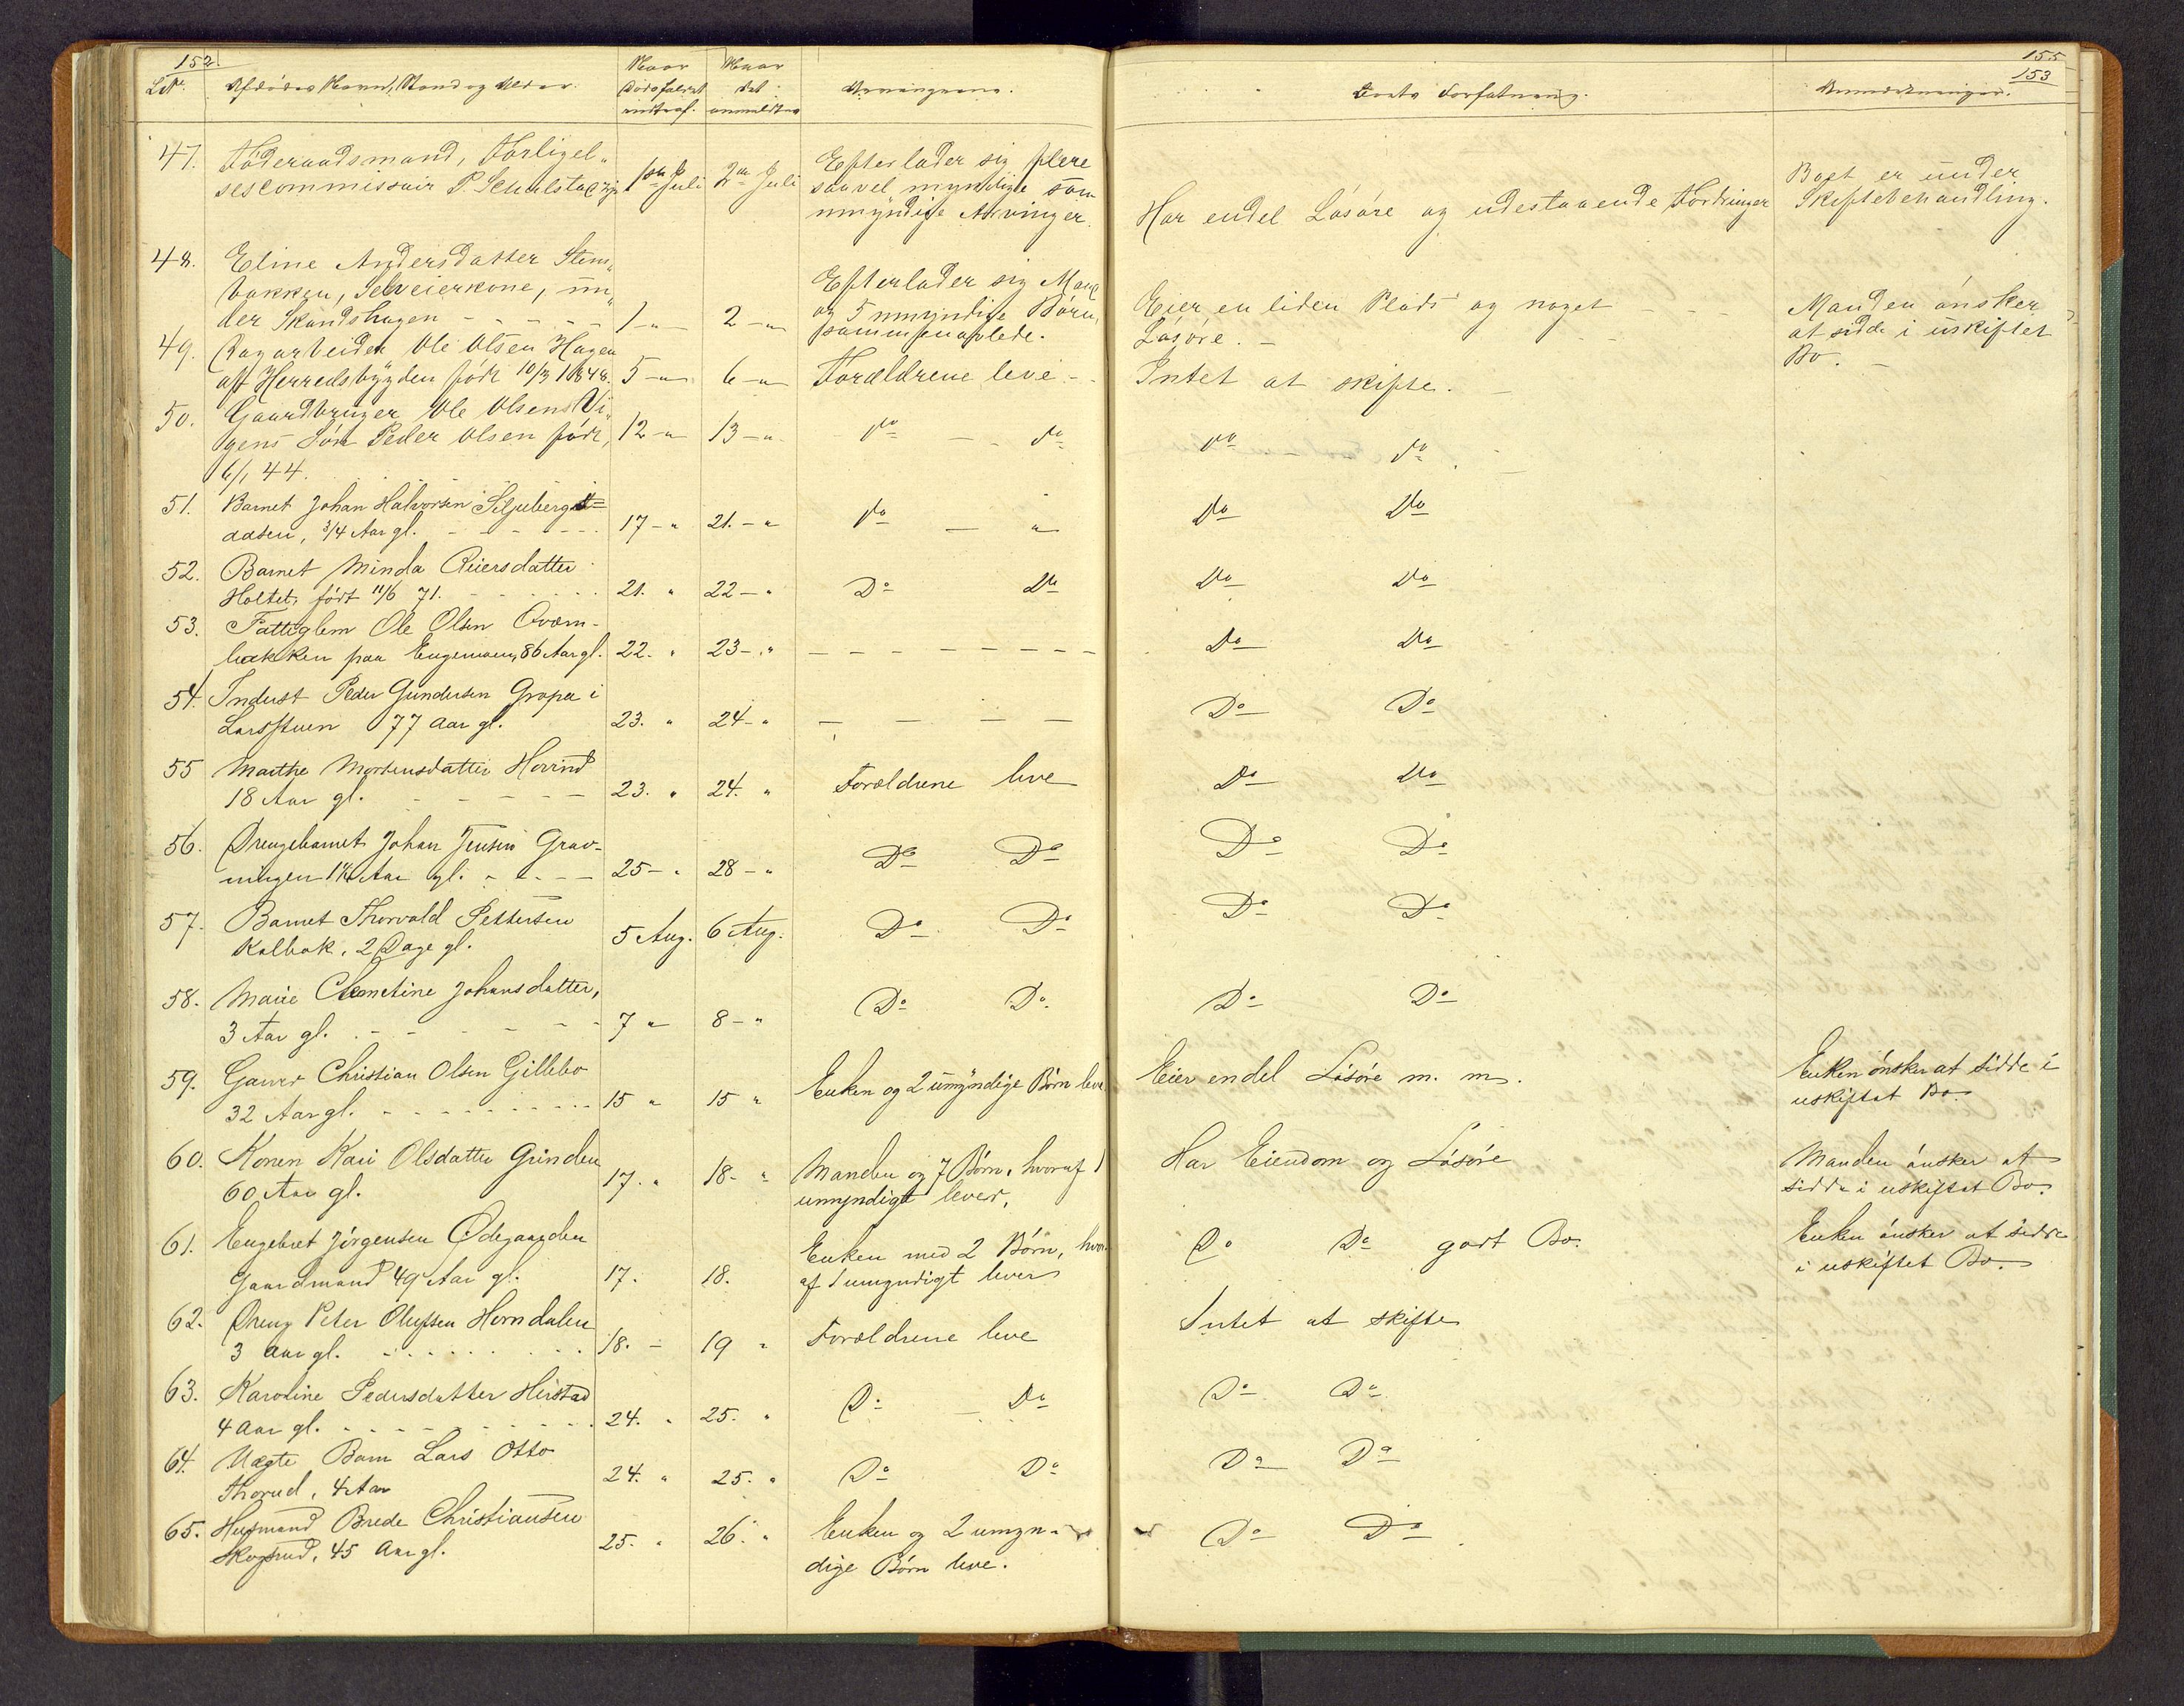 152.
155
153
L.Nr. Afdødes Navn, Stand og Alder. Naar Dødsfaldet indtraf. Naar det anmeldtes Arvingerne. Boets Forfatning. Anmærkninger.
47. Föderaadsmand, Forligel„ 1ste Juli 2den Juli Efterlader sig flere
sescommissair P. Schulstad saavel myndige som
umyndige Arvinger. Har endel Løsøre og udestaaende Fordringer Boet er under
Skiftebehandling.
48. Eline Andersdatter Stens„
bakken, Selveierkone, un„ Efterlader sig Mand
der Skandshagen - - - 1 - " 2 - " og 5 umyndige Børn, Eier en liden Plads og noget - - - Manden ønsker
sammenavlede. Løsøre. - at sidde i uskiftet
Bo. -
49. Ole Olsen Hagen
af Herredsbygden født 10/3 1848. 5 - " 6 - " Forældrene leve - Intet at skifte. -
50. Gaardbruger Ole Olsens Vi„
gens Søn Peder Olsen født, 12 - " 13 - " do - do do - do
6/1 44.
51. Barnet Johan Halvorsen Siljubergs=
aasen, 3/4 Aar gl. - - - 17 - " 21. - " do - " Do Do
52. Barnet Minda Reiersdatter
Holtet, født 11/6 71. - - - 21. " 22 - " Do Do Do Do
53. Fattiglem Ole Olsen Qværn-
bakken paa Engemoen, 86 Aar gl. 22. " 23 - " - - - - - - - - Do Do
54. Inderst Peder Gundersen Gropa i
Larsstuen 77 Aar gl. 23. " 24 - " - - - - Do Do
55 Marthe Mortensdatter Hovind
18 Aar gl. - - - - 23. " 24. " Forældrene leve Do Do
56. Drengebarnet Johan Jensen Grav-
ningen 1 1/4 Aar gl. - - - 25 - " 28 - " Do Do Do Do
57. Barnet Thorvald Pettersen
Kolbæk, 2 Dage gl. 5 Aug. 6 Aug. Do Do Do Do
58. Marie Clemetine Johansdatter,
3 Aar gl. - - - - - 7 " 8 - " Do Do Do Do
59. Garver Christian Olsen Gillebo
32 Aar gl. - - - - 15 " 15 " Enken og 2 umyndige Børn leve Eier endel Løsøre m. m. Enken ønsker at sidde i
uskiftet Bo.
60. Konen Kari Olsdatter Grinden
60 Aar gl. 17. " 18 - " Manden og 7 Børn, hvoraf 1
umyndigt lever. Har Eiendom og Løsøre Manden ønsker at
sidde i uskiftet Bo.
61. Engebret Jørgensen Ødegaarden
Gaardmand 49 Aar gl. 17. 18. Enken med 2 Børn, hvor
af 1 umyndigt lever Do Do godt Bo. Enken ønsker at sidde
i uskiftet Bo.
62. Dreng Peter Olufsen Horndalen
3 Aar gl. - - - - 18. - 19 " Forældrene leve Intet at skifte
63. Karoline Pedersdatter Hirstad
4 Aar gl. - - - - 24. " 25. " Do - Do Do Do
64. Uægte Barn Lars Otto
Thorud, 4 Aar 24. " 25. " Do Do Do Do
65. Husmand Brede Christiansen
Skogrud, 45 Aar gl. 25. " 26. " Enken og 2 umyn-
dige Børn leve. Do Do